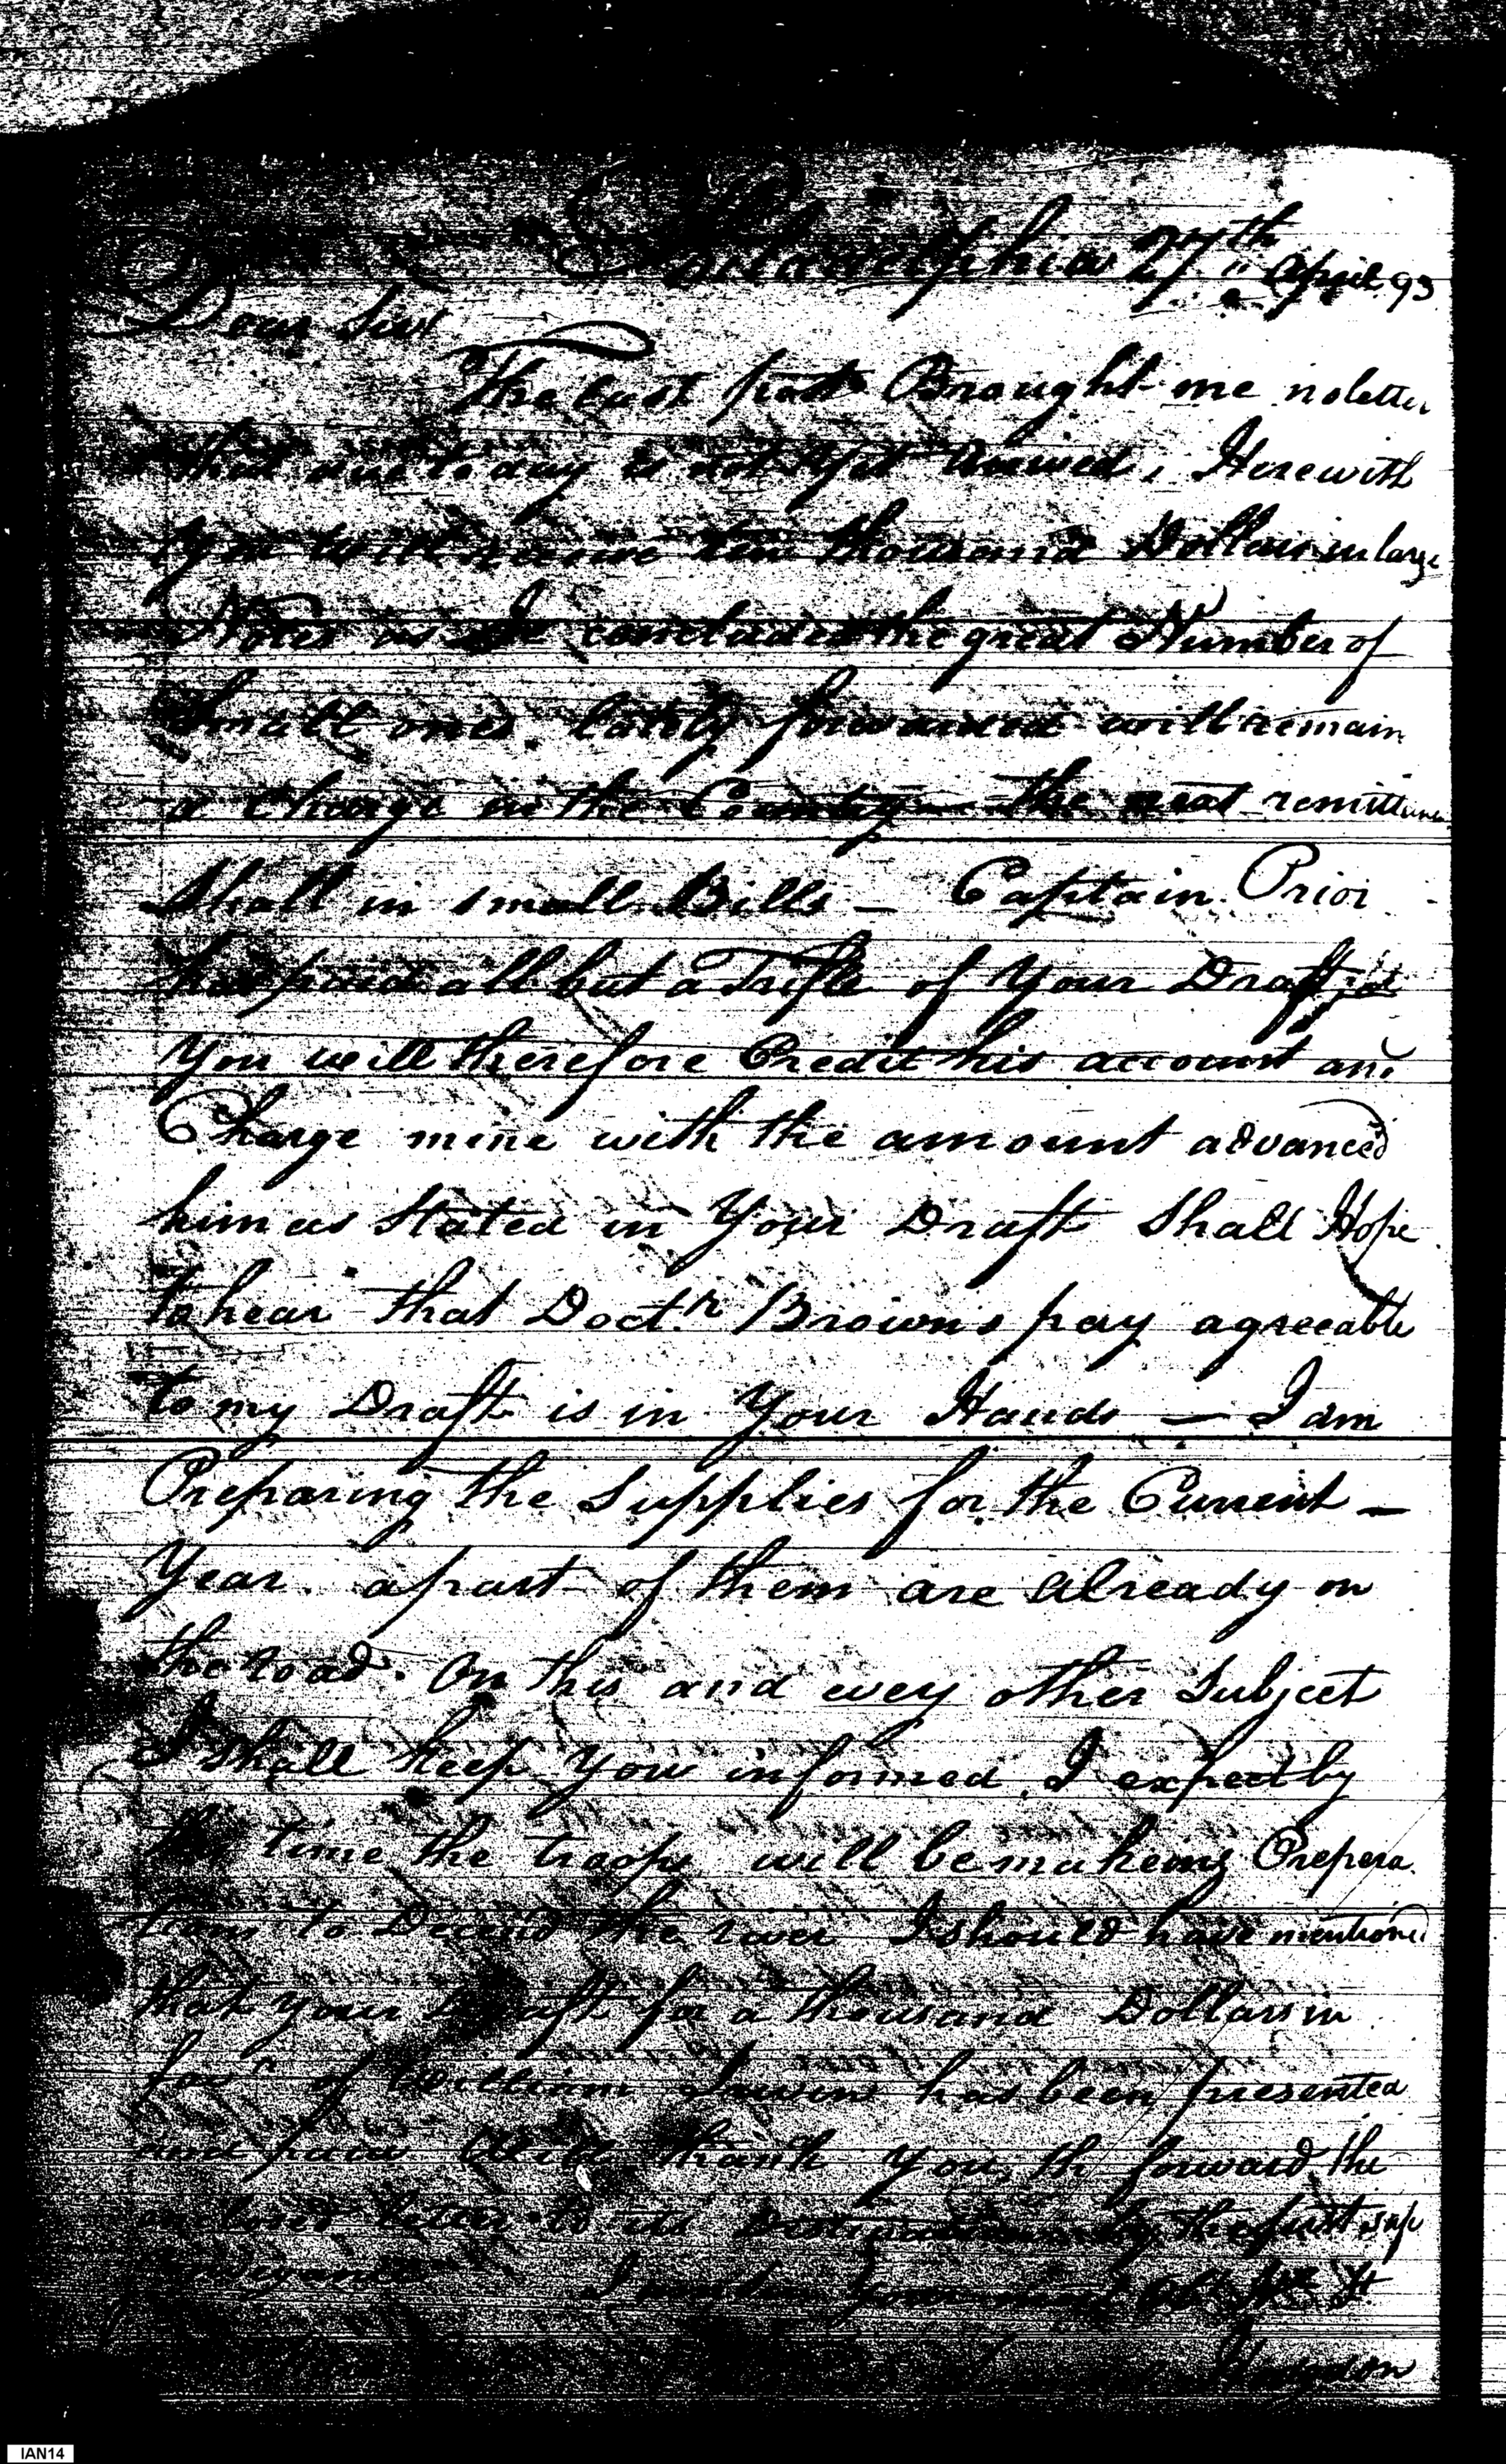 Philadelphia 27th April 93
Dear Sir
The last post Brought me no letter
that due to day is not Yet arrived, Herewith
You will receive ten thousand Dollars in large
Notes as I conclude the great Number of
Small ones lately forwarded will remain
a charge in the Country — the next remittance
Shall in small Bills — Captain Prior
has paid all but a Trifle of Your Draft
You will therefore Credit his account and
Charge mine with the amount advanced
him as Stated in Your Draft Shall Hope
to hear that Doctr Browns pay agreeable
to my Draft is in Your Hands — I am
Preparing the Supplies for the Current —
Year. a part of them are already on
the road. On this and evey other Subject
I shall keep You informed, I expect by
this time the troops will be makeing Prepera
tions to Decend the river I should have mentioned
that your Draft for a thousand Dollars in
favr of William has been presented
and paid Will thank You to forward the
enclosed letter to its Destination by the first safe
conveyance I am Your most Obt
Hodgdon
IAN14